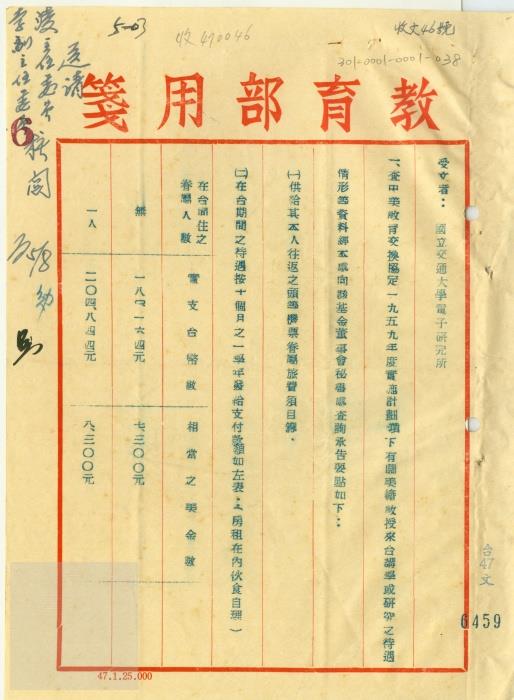 收文46號
收470046
5-03
301-0001-0001-038
教育部用箋
受文者：國立交通大學電子研究所
一、查中美教育交換協定一九五九年度實施計劃項下有關美籍教授來台講學或研究之待遇
情形等資料經本處向該基金董事會秘書處查詢承告要點如下：
㈠供給其本人往返之頭等機票眷屬旅費須自籌。
㈡在台期間之待遇按十個月之一學年發給支付數額如左表：（房租在內伙食自理）
在台同住之眷屬人數
實支台幣數
相當之美金數
無
一八〇、一六四元
七、三〇〇元
一人
二〇四、八四四元
八、三〇〇元
送請
凌主任委員
李副主任委員
核閱
6
台47文
6459
47.1.25.000